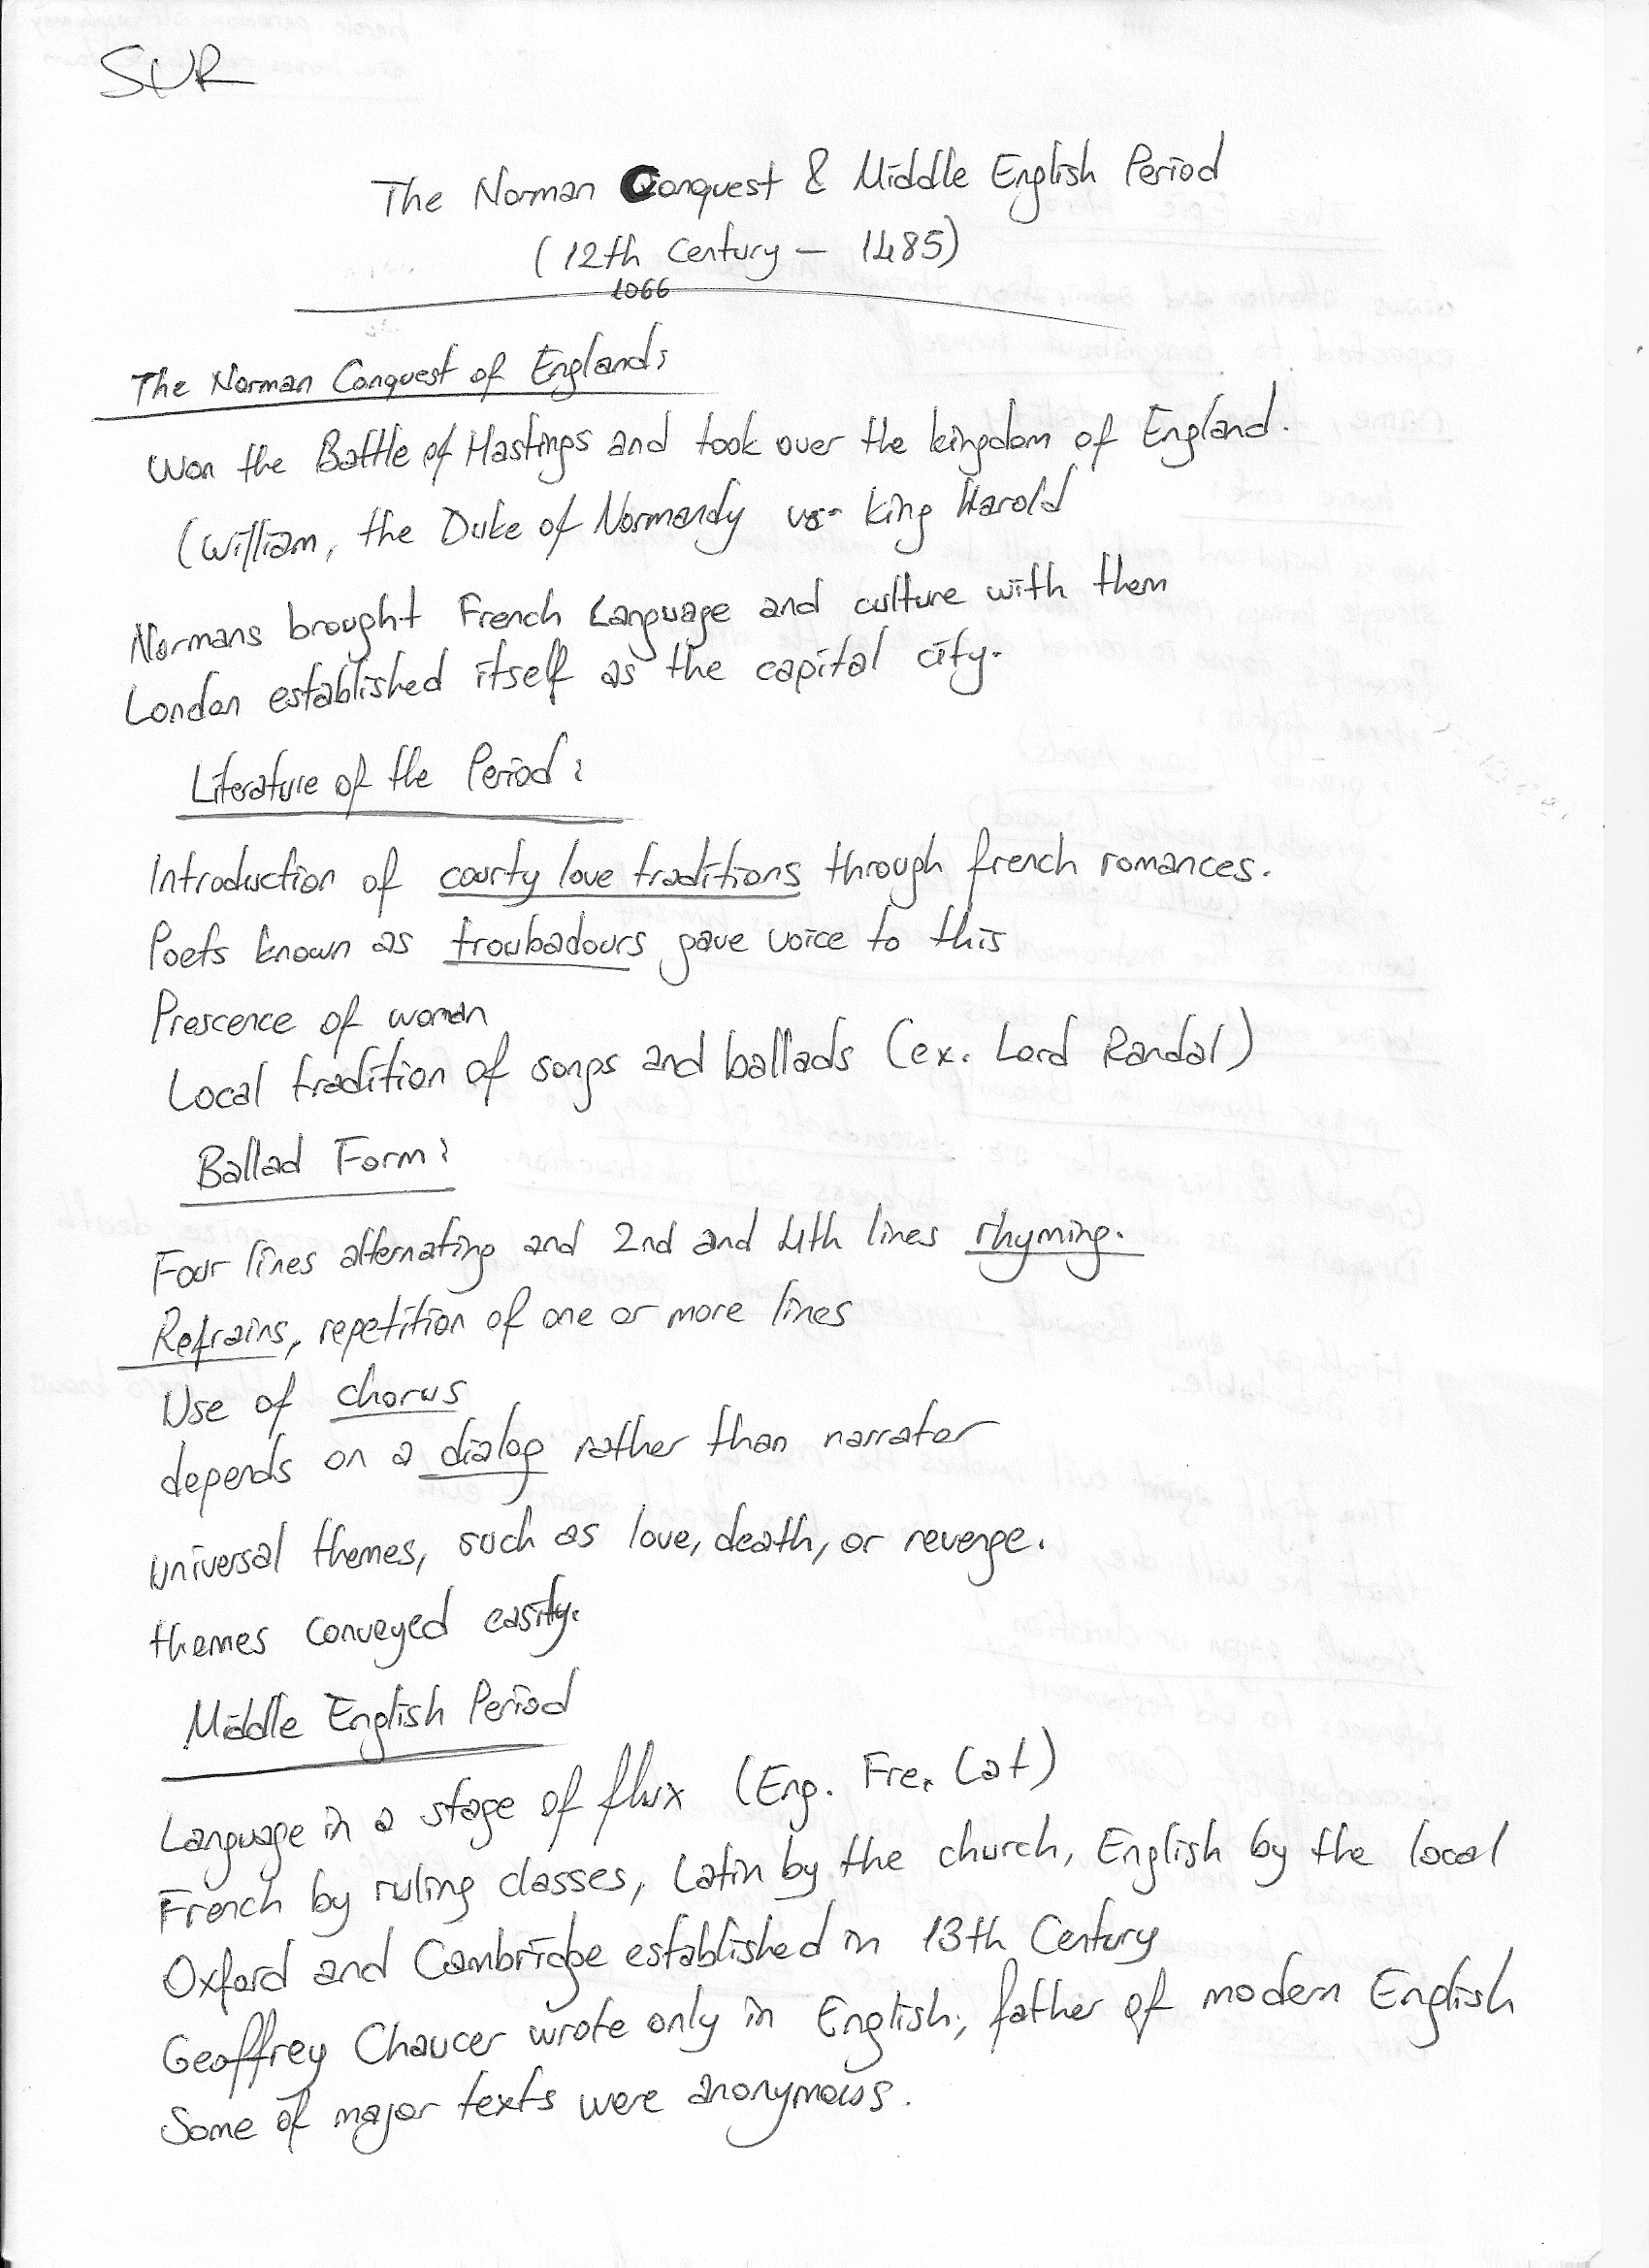 SUR
The Norman Conquest & Middle English Period
(12th Century – 1485)
1066
The Norman Conquest of England:
Won the Battle of Hastings and took over the kingdom of England.
(William, the Duke of Normandy vs. King Harold
Normans brought French Language and culture with them
London established itself as the capital city.
Literature of the Period:
Introduction of courty love traditions through french romances.
Poets known as troubadours gave voice to this
Prescence of woman
Local tradition of songs and ballads (ex. Lord Randal)
Ballad Form:
Four lines alternating and 2nd and 4th lines rhyming.
Refrains, repetition of one or more lines
Use of chorus
depends on a dialog rather than narrator
universal themes, such as love, death, or revenge.
themes conveyed easily.
Middle English Period
Language in a stage of flux (Eng. Fre. Lat)
French by ruling classes, Latin by the church, English by the local
Oxford and Cambridge established in 13th Century
Geoffrey Chaucer wrote only in English; father of modern English
Some of major texts were anonymous.